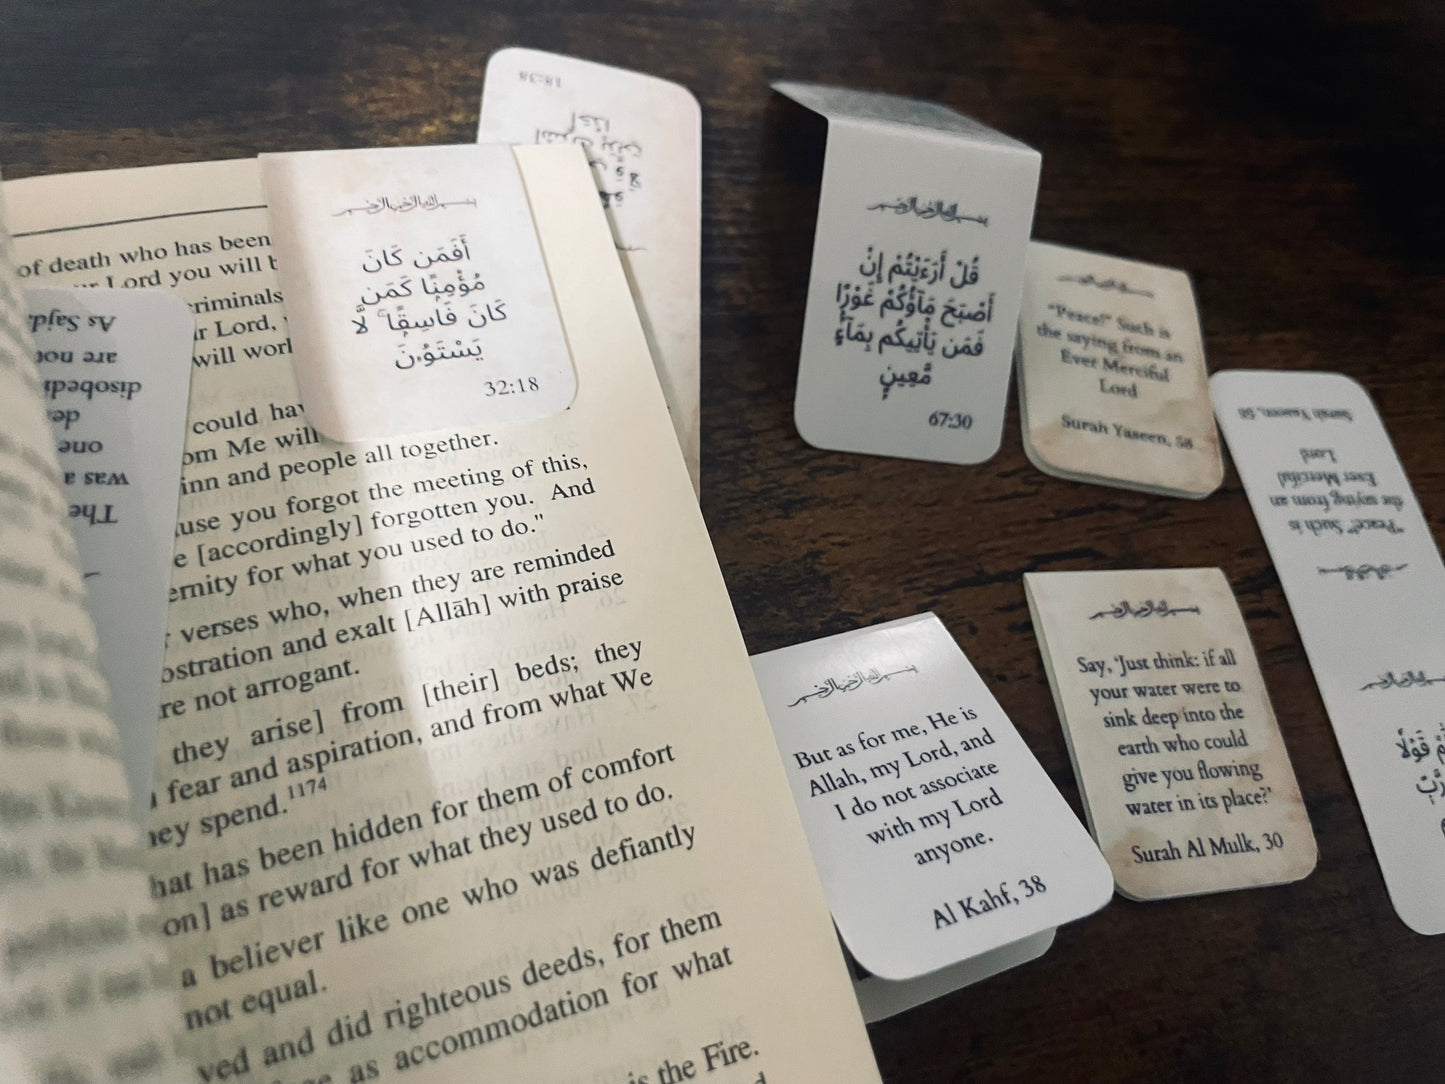 of death who has been
Lord you will b
criminals
ir Lord,
will worl
could hav
om Me will
inn and people all together.
use you forgot the meeting of this,
e [accordingly] forgotten you. And
ernity for what you used to do."
verses who, when they are reminded
ostration and exalt [Allāh] with praise
re not arrogant.
they arise] from [their] beds; they
fear and aspiration, and from what We
ey spend.1174
hat has been hidden for them of comfort
on] as reward for what they used to do.
a believer like one who was defiantly
not equal.
ved and did righteous deeds, for them
as accommodation for what
is the Fire.
As Sajd
are not
disobedi
def
one
was a
The
بسم الله الرحمن الرحيم
أَفَمَن كَانَ
مُؤْمِنًا كَمَن
كَانَ فَاسِقًا ۚ لَّا
يَسْتَوُۥنَ
32:18
18:38
بسم الله الرحمن الرحيم
قُلْ أَرَءَيْتُمْ إِنْ
أَصْبَحَ مَآؤُكُمْ غَوْرًا
فَمَن يَأْتِيكُم بِمَآءٍ
مَّعِينٍ
67:30
"Peace!" Such is
the saying from an
Ever Merciful
Lord
Surah Yaseen, 58
Surah Yaseen, 58
"Peace!" Such is
the saying from an
Ever Merciful
Lord
قَوْلًا
رَّبٍّ
بسم الله الرحمن الرحيم
But as for me, He is
Allah, my Lord, and
I do not associate
with my Lord
anyone.
Al Kahf, 38
بسم الله الرحمن الرحيم
Say, 'Just think: if all
your water were to
sink deep into the
earth who could
give you flowing
water in its place?'
Surah Al Mulk, 30